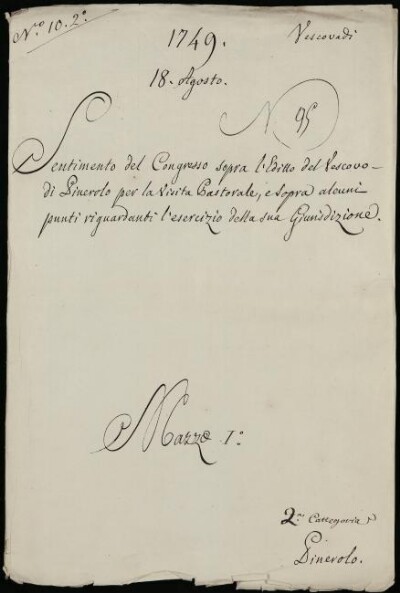 N.º 10. 2.º
1749.
Vescovadi
18. Agosto.
N 95
Sentimento del Congresso sopra l'Editto del Vescovo
di Pinerolo per la Visita Pastorale, e sopra alcuni
punti riguardanti l'esercizio della sua Giurisdizione.
Mazzo I.º
2.da Cattegoria
Pinerolo.